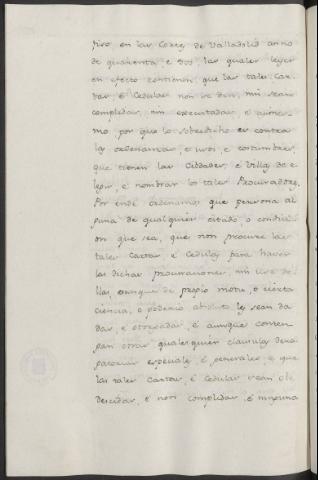 fizo, en las Cortes de Valladolid anno
de quarenta, e dos las quales leyes
en efecto contienen, que las tales Car-
tas, é Cedulas non se den, nin sean
complidas, nin executadas, é quiero
mo, por que lo sobredicho es contra
las ordenanzas, e usos, e costumbres,
que tienen las Cibdades, é Villas de e-
legir, e nombrar los tales Procuradores.
Por ende ordenamos que persona al-
guna de qualquier estado, o condici-
on que sea, que non procure las
tales Cartas é Cedulas para haver
las dichas procuraciones, nin use de-
llas, aunque de propio motu, o cierta
ciencia, o poderio absoluto les sean da-
das, e otorgadas, é aunque conten-
gan otras qualesquier clausulas dero-
gatorias especiales, é generales, e que
las tales Cartas, é Cedulas sean ob-
descidas, e non complidas, é ninguna